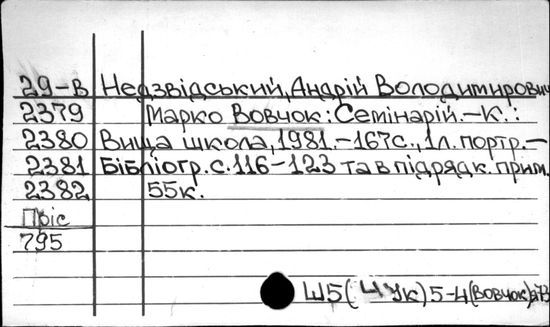 29-В Недзвідський, Андрій Володимирович
2379 Марко Вовчок: Семінарій.-К.:
2380 Вища школа, 1981.-167с., 1л. портр.-
2381 Бібліогр. с. 116-123 та в підрядк. прим.
2382 55к.
795
Ш5(4Ук)5-4(Вовчок)